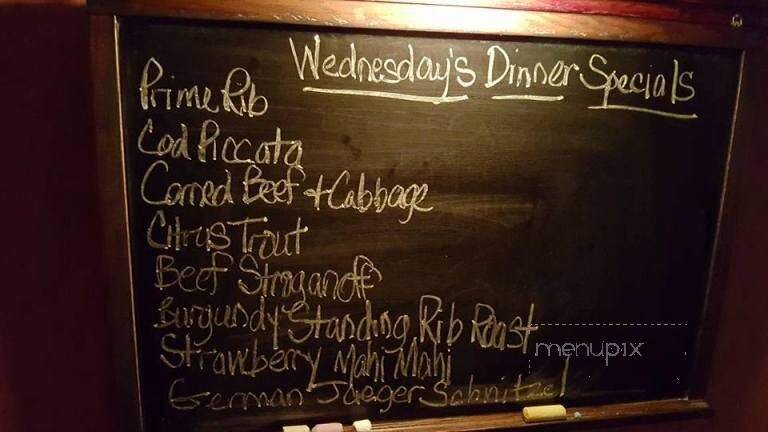 Wednesday's Dinner Specials
Prime Rib
Cod Piccata
Corned Beef + Cabbage
Citrus Trout
Beef Stroganoff
Burgundy Standing Rib Roast
Strawberry Mahi Mahi
menupix
German Jaeger Schnitzel